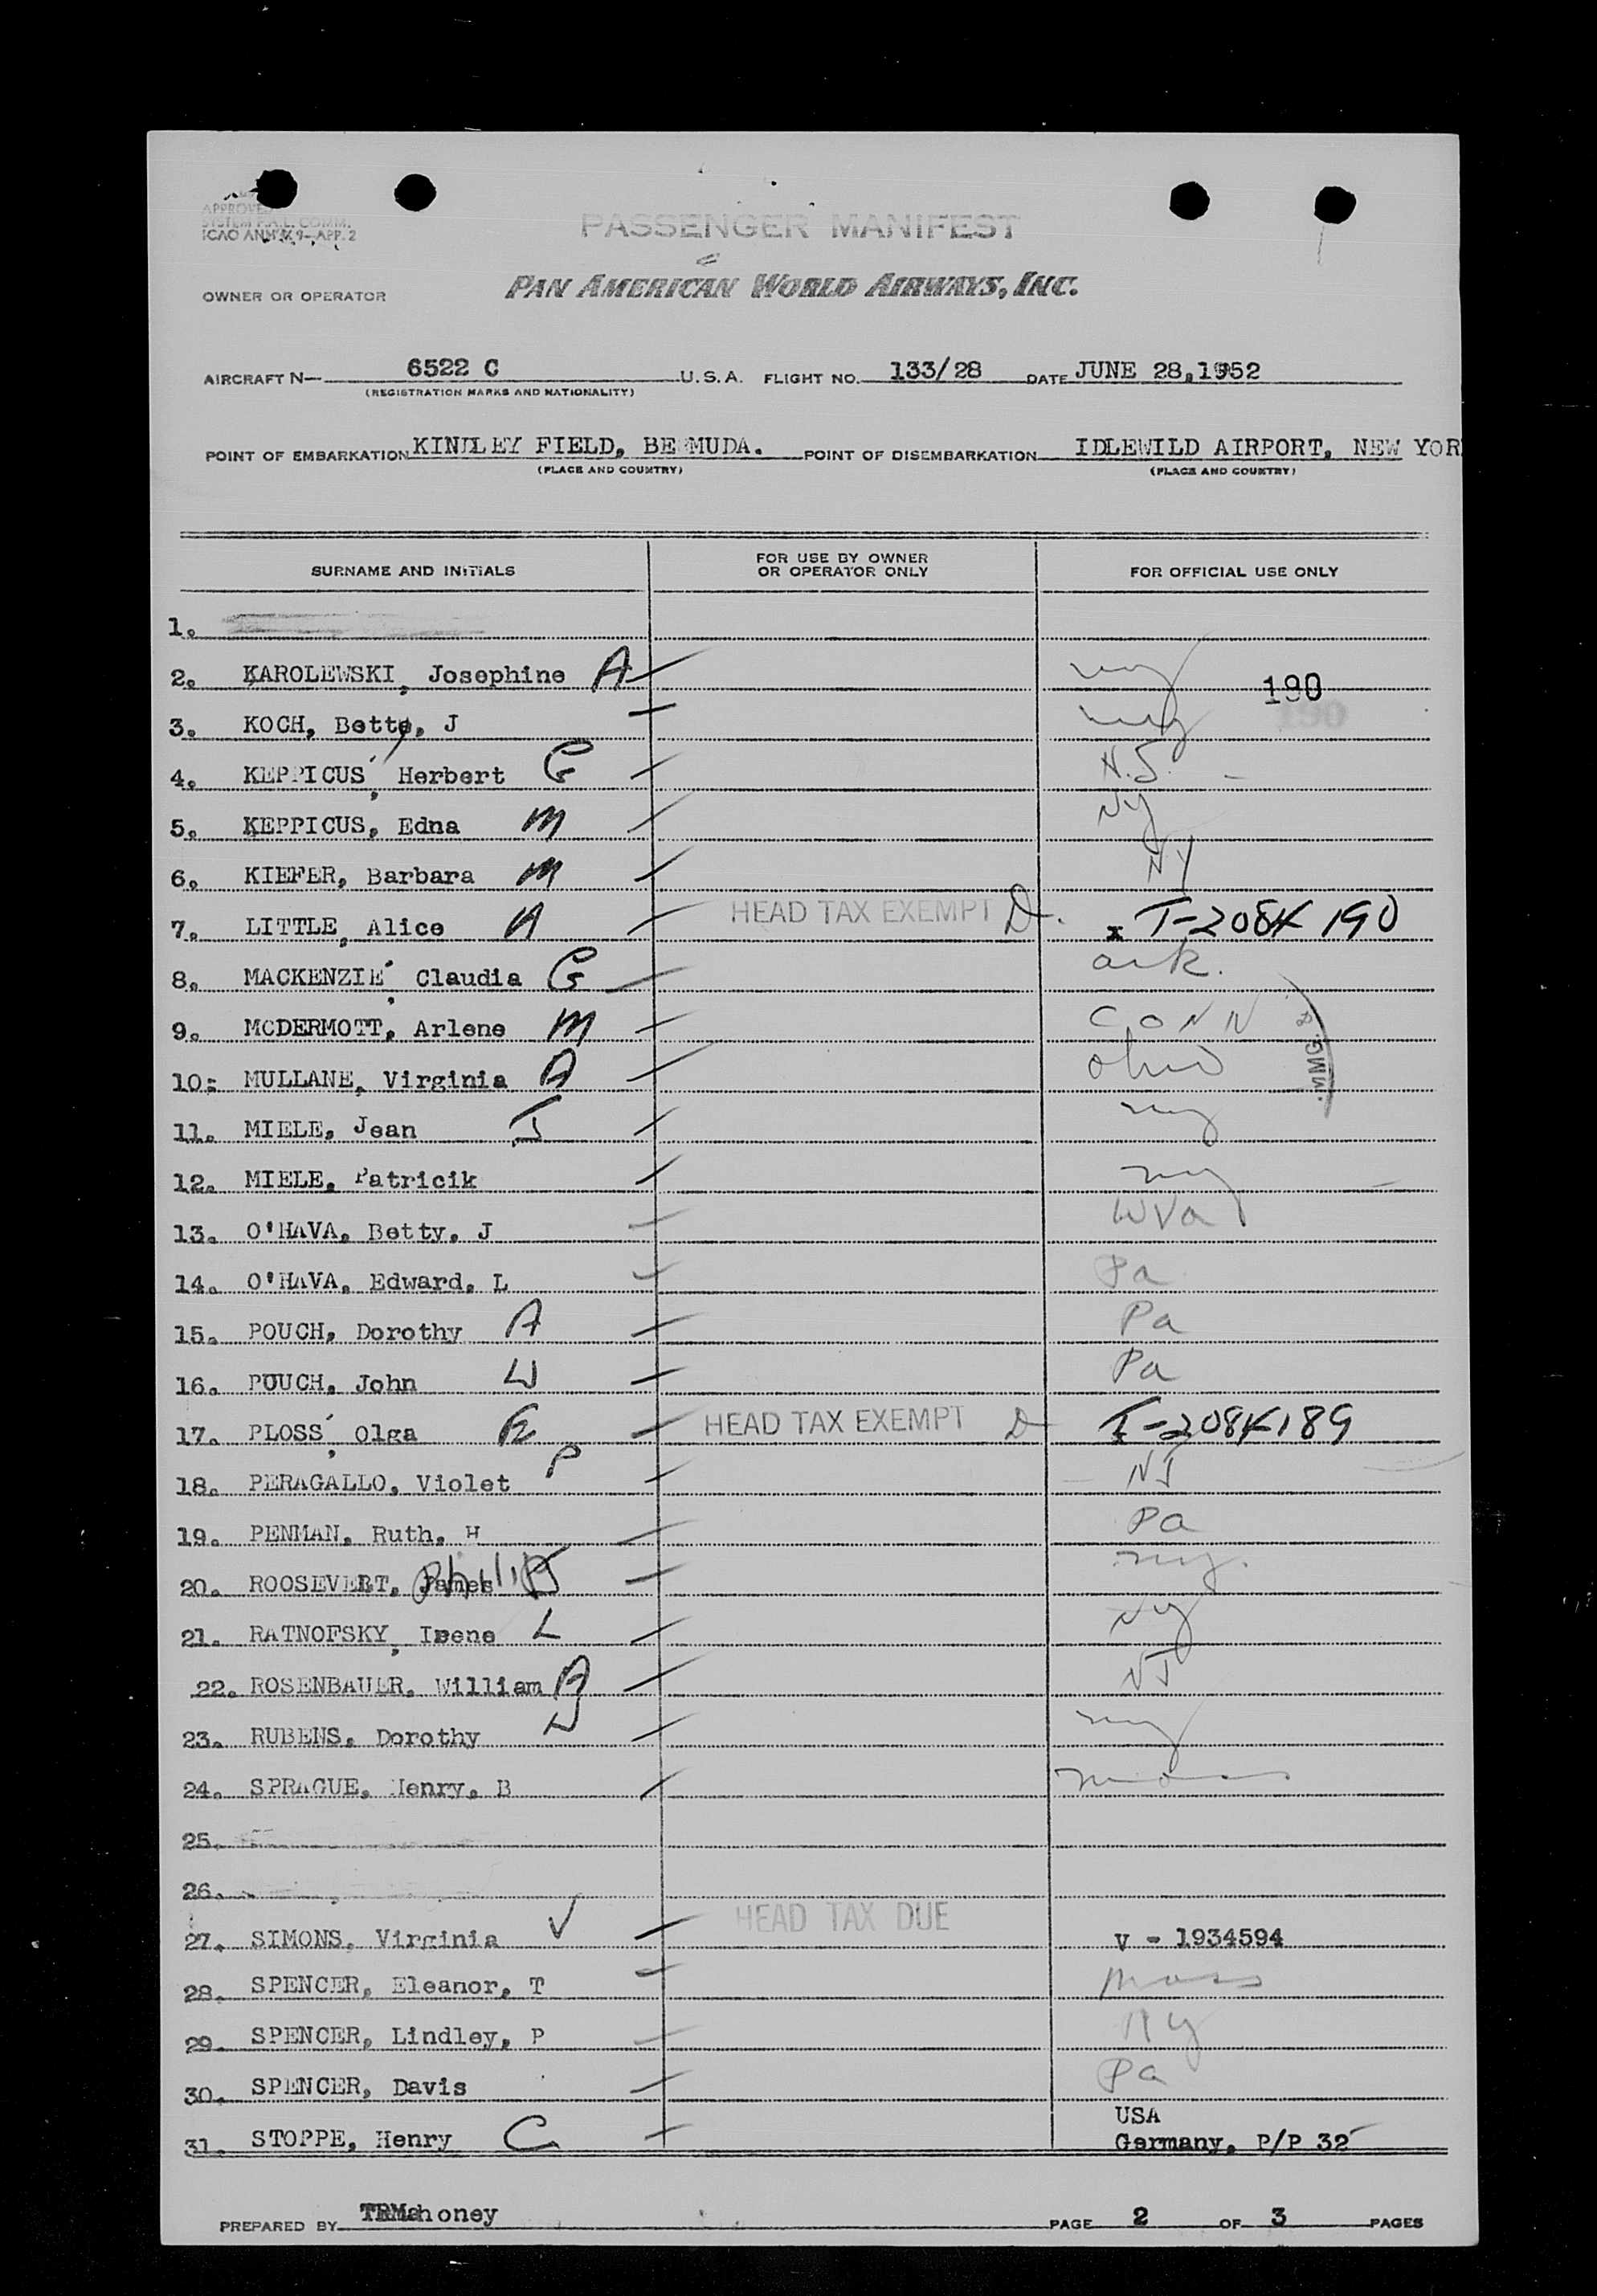 APPROVED
SYSTEM F.A.L. COMM.
ICAO ANNEX 9—APP. 2
PASSENGER MANIFEST
OWNER OR OPERATOR PAN AMERICAN WORLD AIRWAYS, INC.
AIRCRAFT N— 6522 C U.S.A. FLIGHT NO. 133/28 DATE JUNE 28,1952
(REGISTRATION MARKS AND NATIONALITY)
POINT OF EMBARKATION KINDLEY FIELD, BERMUDA. POINT OF DISEMBARKATION IDLEWILD AIRPORT, NEW YOR
(PLACE AND COUNTRY) (PLACE AND COUNTRY)
SURNAME AND INITIALS FOR USE BY OWNER OR OPERATOR ONLY FOR OFFICIAL USE ONLY
1.
2. KAROLEWSKI, Josephine A ny 190
3. KOCH, Betty, J ny 190
4. KEPPICUS, Herbert G N.J.
5. KEPPICUS, Edna M Ny
6. KIEFER, Barbara M NY
7. LITTLE, Alice A HEAD TAX EXEMPT D. x T-2084190
8. MACKENZIE, Claudia G ark.
9. MCDERMOTT, Arlene M CONN IMMG. &
10. MULLANE, Virginia A ohio
11. MIELE, Jean J ny
12. MIELE, Patricik ny
13. O'HAVA, Betty, J WVa
14. O'HAVA, Edward, L Pa
15. POUCH, Dorothy A Pa
16. POUCH, John W Pa
17. PLOSS, Olga E HEAD TAX EXEMPT D T-2084189
18. PERAGALLO, Violet P NJ
19. PENMAN, Ruth, H Pa
20. ROOSEVELT, James Philip J ny.
21. RATNOFSKY, Irene L Ny
22. ROSENBAUER, William A NJ
23. RUBENS, Dorothy W ny
24. SPRAGUE, Henry, B mass
25.
26.
27. SIMONS, Virginia V HEAD TAX DUE V - 1934594
28. SPENCER, Eleanor, T mass
29. SPENCER, Lindley, P Ny
30. SPENCER, Davis Pa
USA
31. STOPPE, Henry C Germany, P/P 32
PREPARED BY TRMahoney PAGE 2 OF 3 PAGES